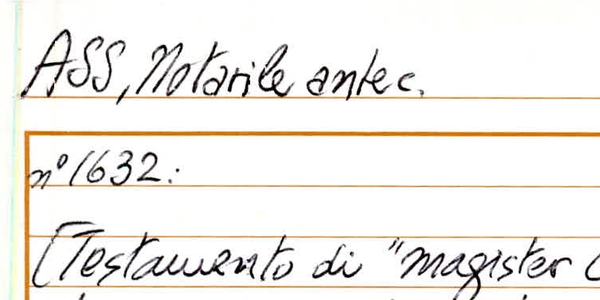 ASS, Notarile antec.
n° 1632:
[Testamento di "magister